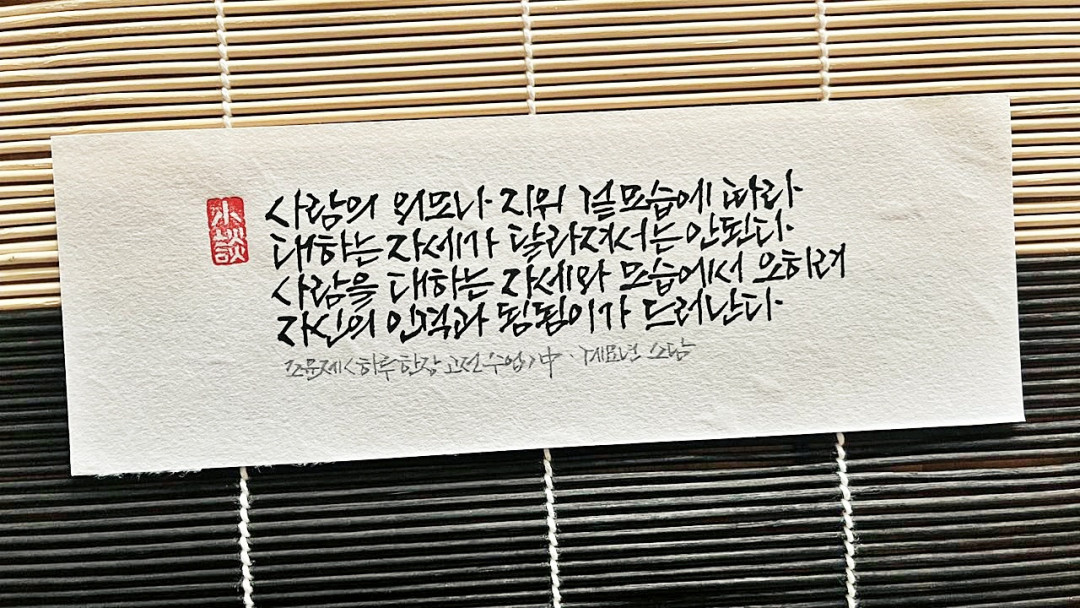 小談
사람의 외모나 지위 겉모습에 따라
대하는 자세가 달라져서는 안된다.
사람을 대하는 자세와 모습에서 오히려
자신의 인격과 됨됨이가 드러난다.
조윤제<하루 한장 고전 수업>中 · 계묘년 소담